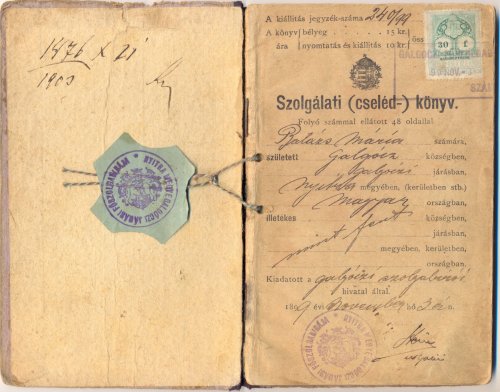 1476 X 21
1903
NYITRA MEGYE GALGÓCZI JÁRÁSI FŐSZOLGABIRÁJA
A kiállítás jegyzék-száma 240/99
A könyv bélyeg . . . 15 kr.
ára nyomtatás és kiállítás 10 kr. össz
30 f
Szolgálati (cseléd-) könyv.
Folyó számmal ellátott 48 oldallal
Balázs Mária számára,
született Galgócz községben,
Galgóczi járásban,
Nyitra megyében, (kerületben stb.)
Magyar országban,
illetékes községben,
mint fent járásban,
megyében, kerületben,
országban.
Kiadatott a galgóczi szolgabírói
hivatal által.
189 9 évi november hó 3 án.
NYITRA MEGYE GALGÓCZI JÁRÁSI FŐSZOLGABIRÁJA